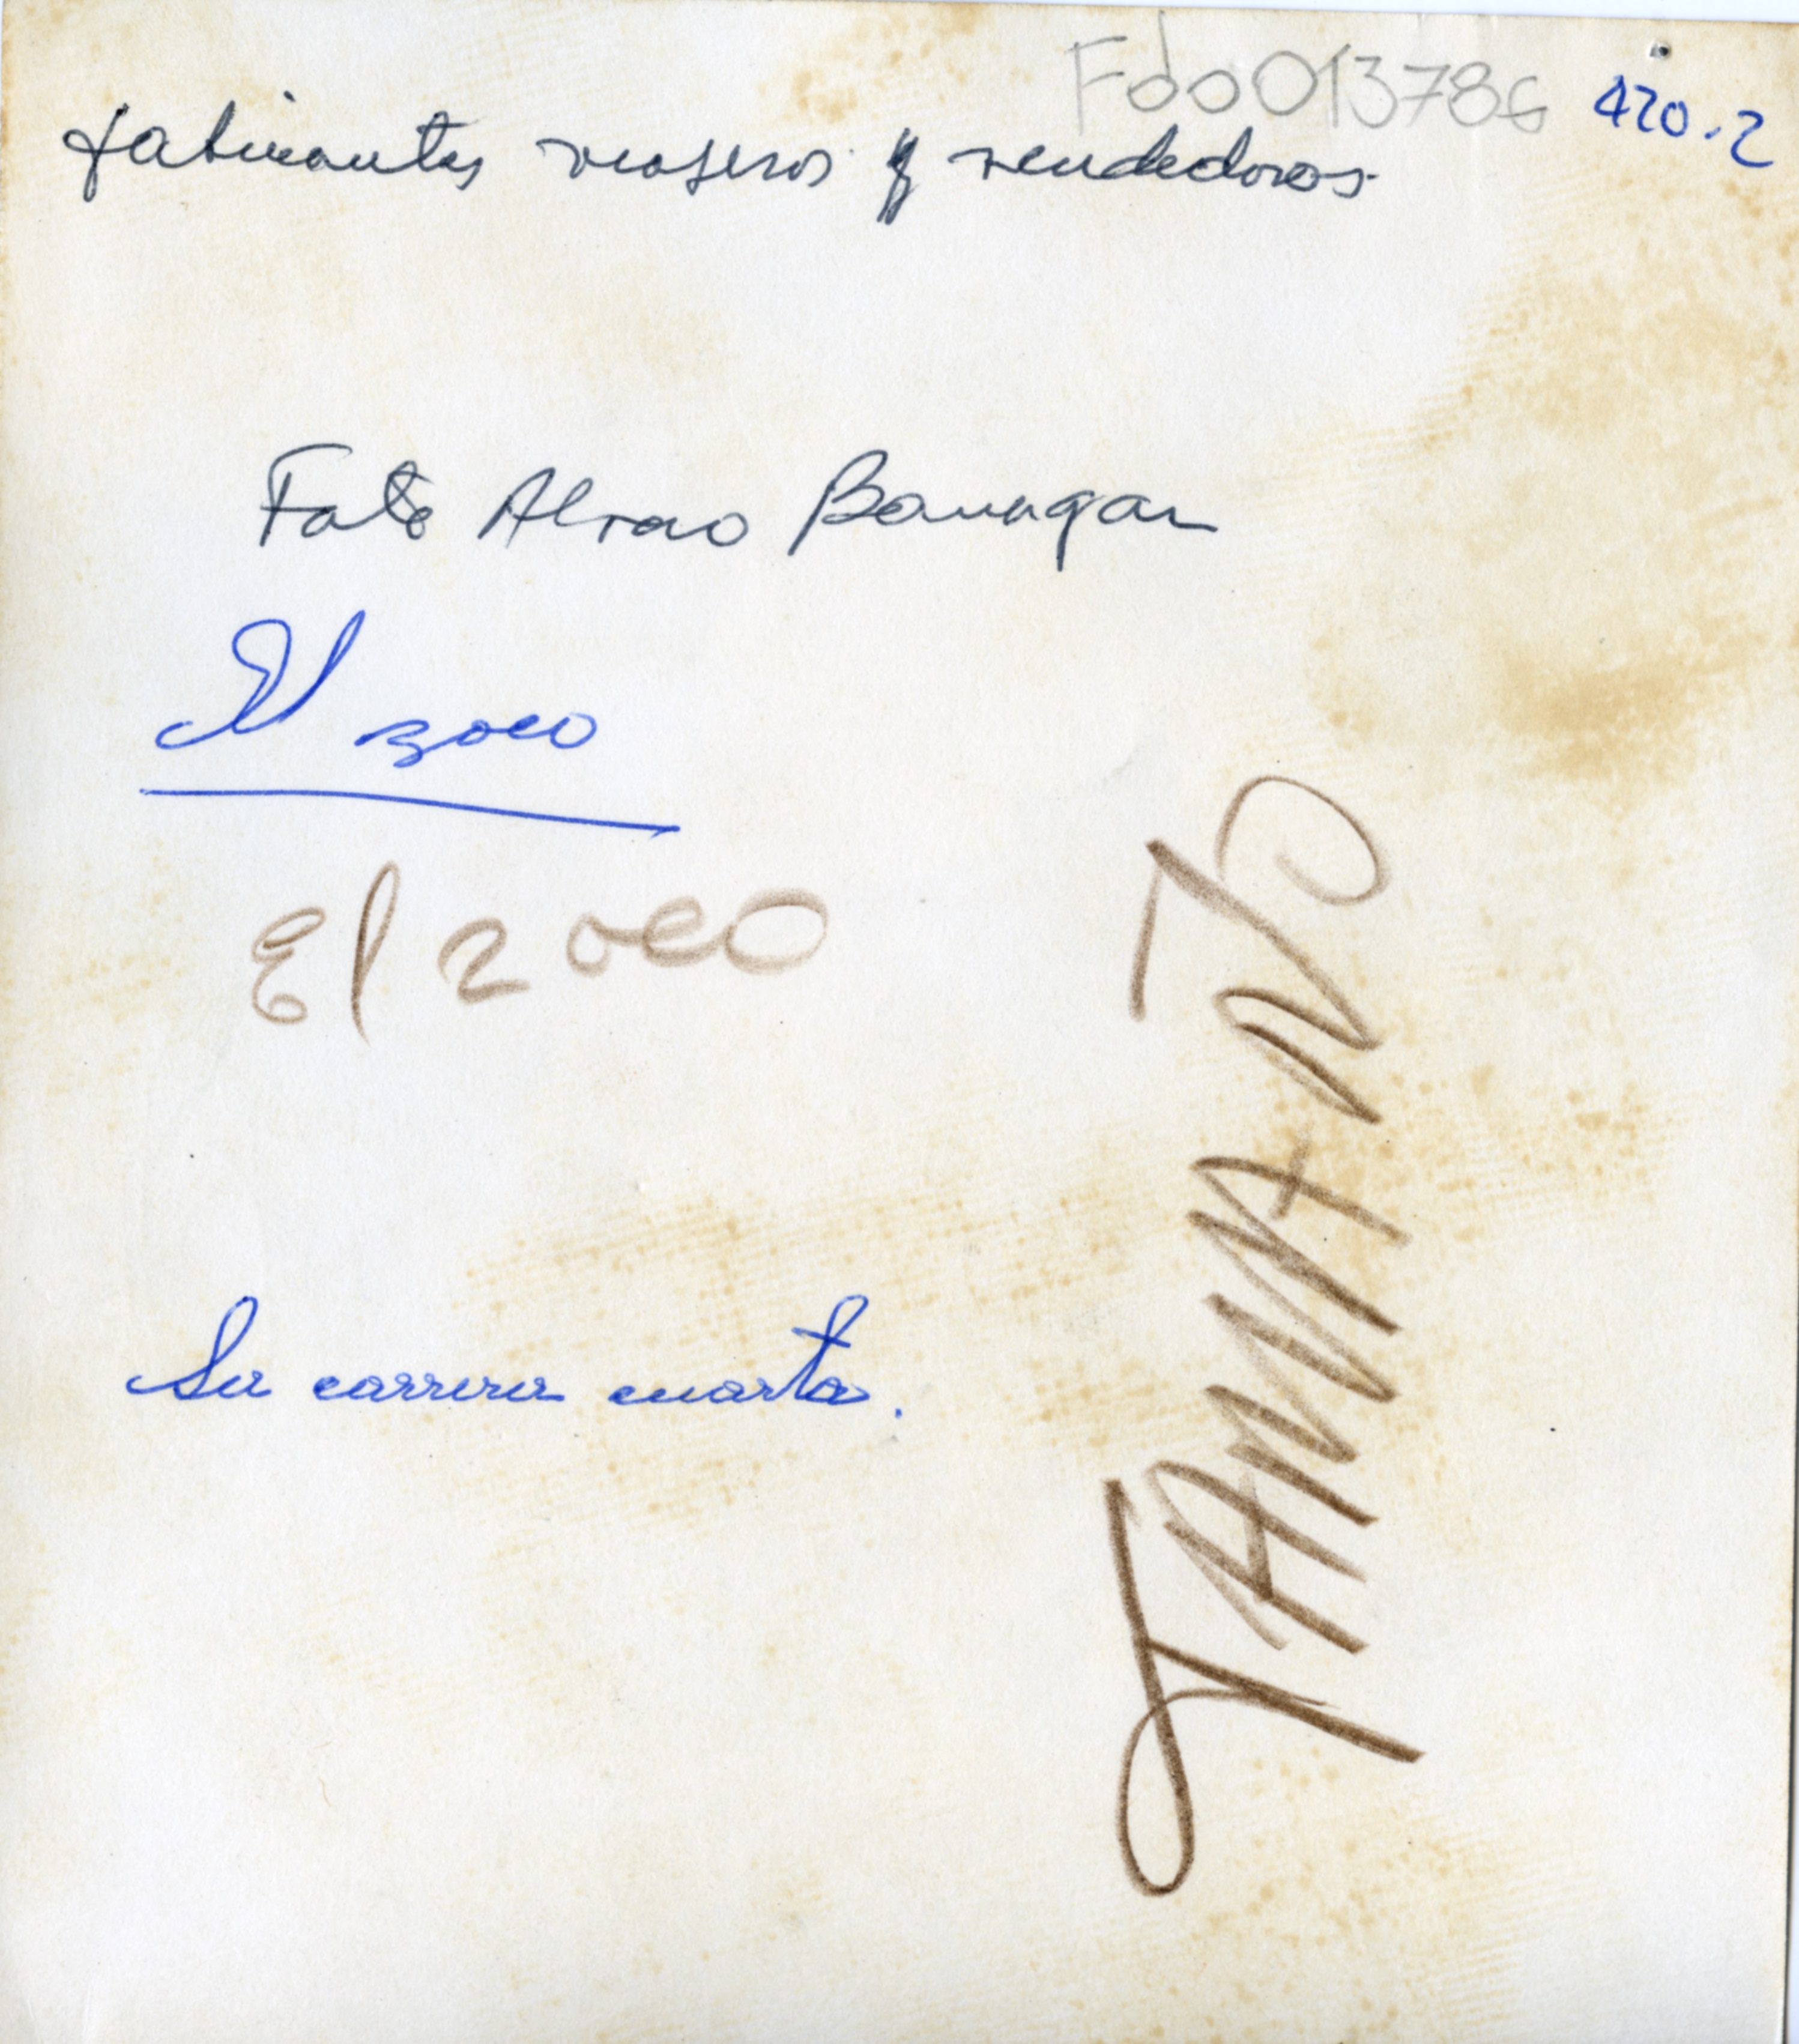 Fdo013786 420.2
fabricantes viajeros y vendedores.
Foto Alvaro Barragan
El zoco
El zoco
La carrera cuarta.